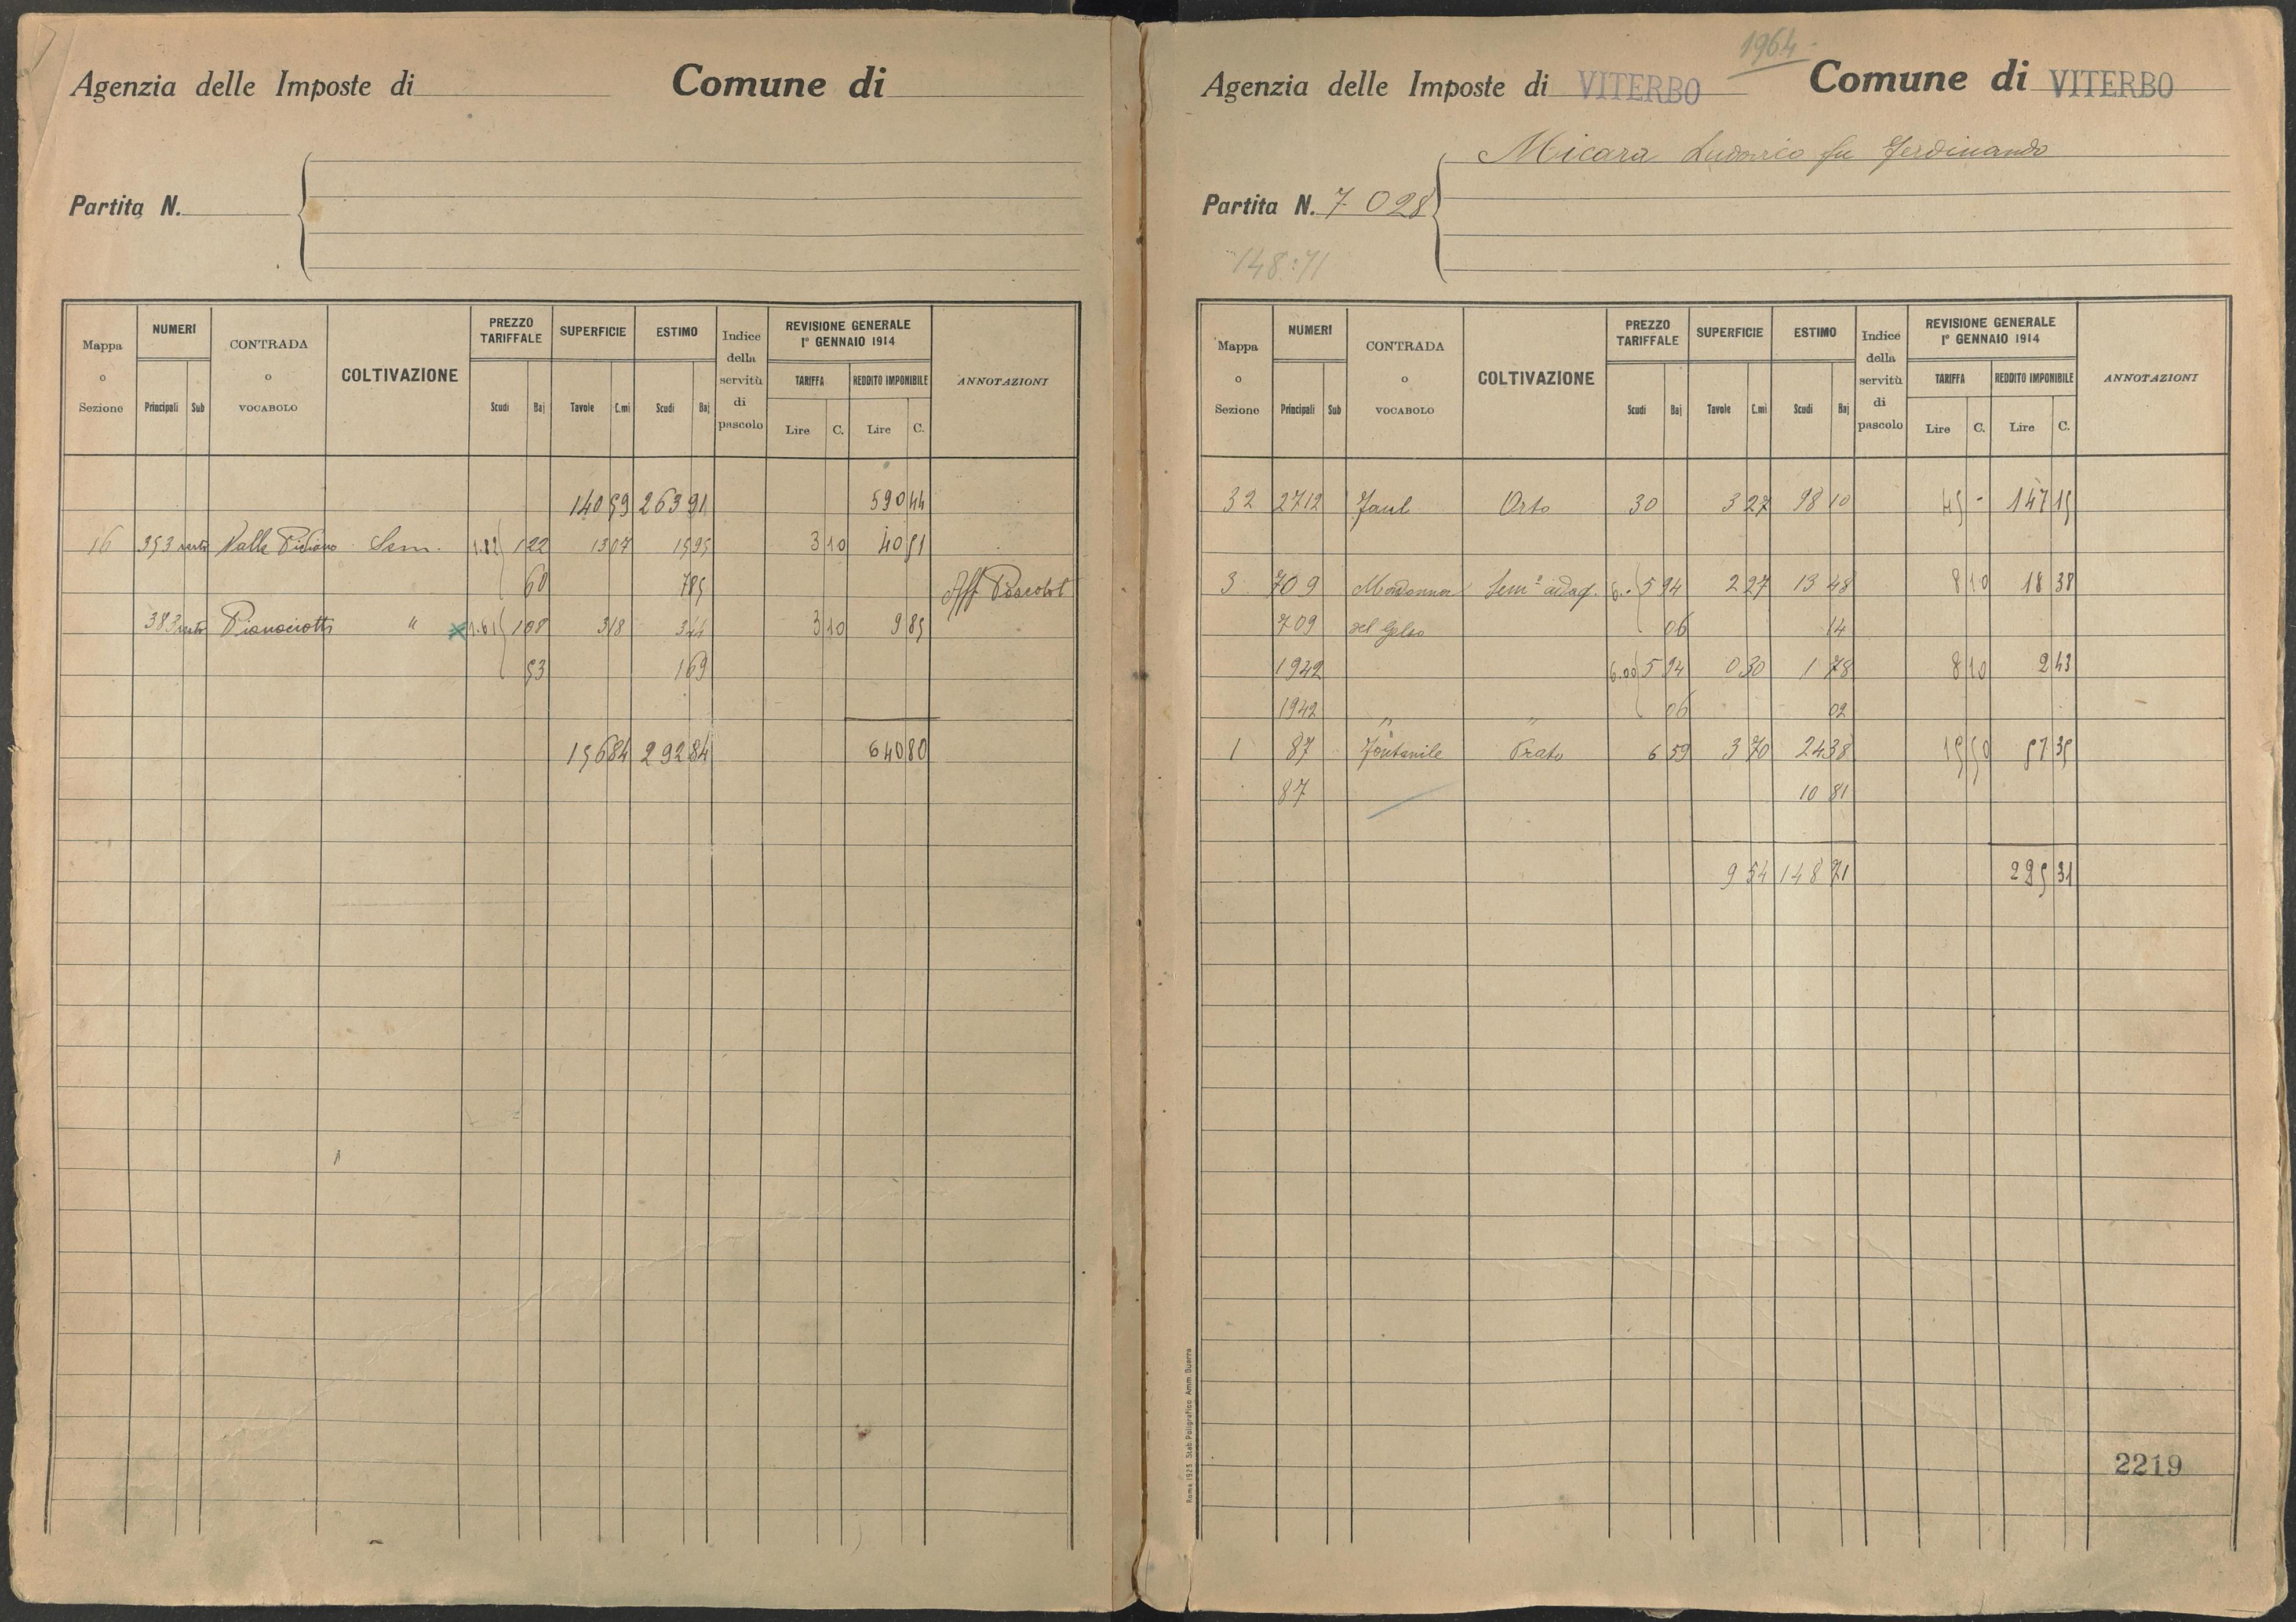 Agenzia delle Imposte di
Comune di
Partita N.
Mappa o Sezione
NUMERI
Principali Sub
CONTRADA o VOCABOLO
COLTIVAZIONE
PREZZO TARIFFALE
Scudi Baj
SUPERFICIE
Tavole C.mi
ESTIMO
Scudi Baj
Indice della servitù di pascolo
REVISIONE GENERALE 1° GENNAIO 1914
TARIFFA
Lire C.
REDDITO IMPONIBILE
Lire C.
ANNOTAZIONI
140 59 263 91 590 44
16 353 Valle Sem. 1.82 1 22 13 07 15 95 3 10 40 51
60 7 85
Aff.
383 " 1.61 1 08 3 18 3 44 3 10 9 85
53 1 69
156 84 292 84 640 80
1964
Agenzia delle Imposte di VITERBO Comune di VITERBO
Micara Ludovico fu Ferdinando
Partita N. 7028
148:71
Mappa o Sezione
NUMERI
Principali Sub
CONTRADA o VOCABOLO
COLTIVAZIONE
PREZZO TARIFFALE
Scudi Baj
SUPERFICIE
Tavole C.mi
ESTIMO
Scudi Baj
Indice della servitù di pascolo
REVISIONE GENERALE 1° GENNAIO 1914
TARIFFA
Lire C.
REDDITO IMPONIBILE
Lire C.
ANNOTAZIONI
32 2712 Faul Orto 30 3 27 98 10 45 - 147 15
3 709 Madonna Sem.o adaq. 6.- 5 94 2 27 13 48 8 10 18 38
709 del Gelso 06 14
1942 6.00 5 94 0 30 1 78 8 10 2 43
1942 " " 06 02
1 87 Fontanile Prato 6 59 3 70 24 38 15 50 57 35
87 10 81
9 54 148 71 225 31
Roma 1923. Stab Poligrafico Amm. Guerra
2219